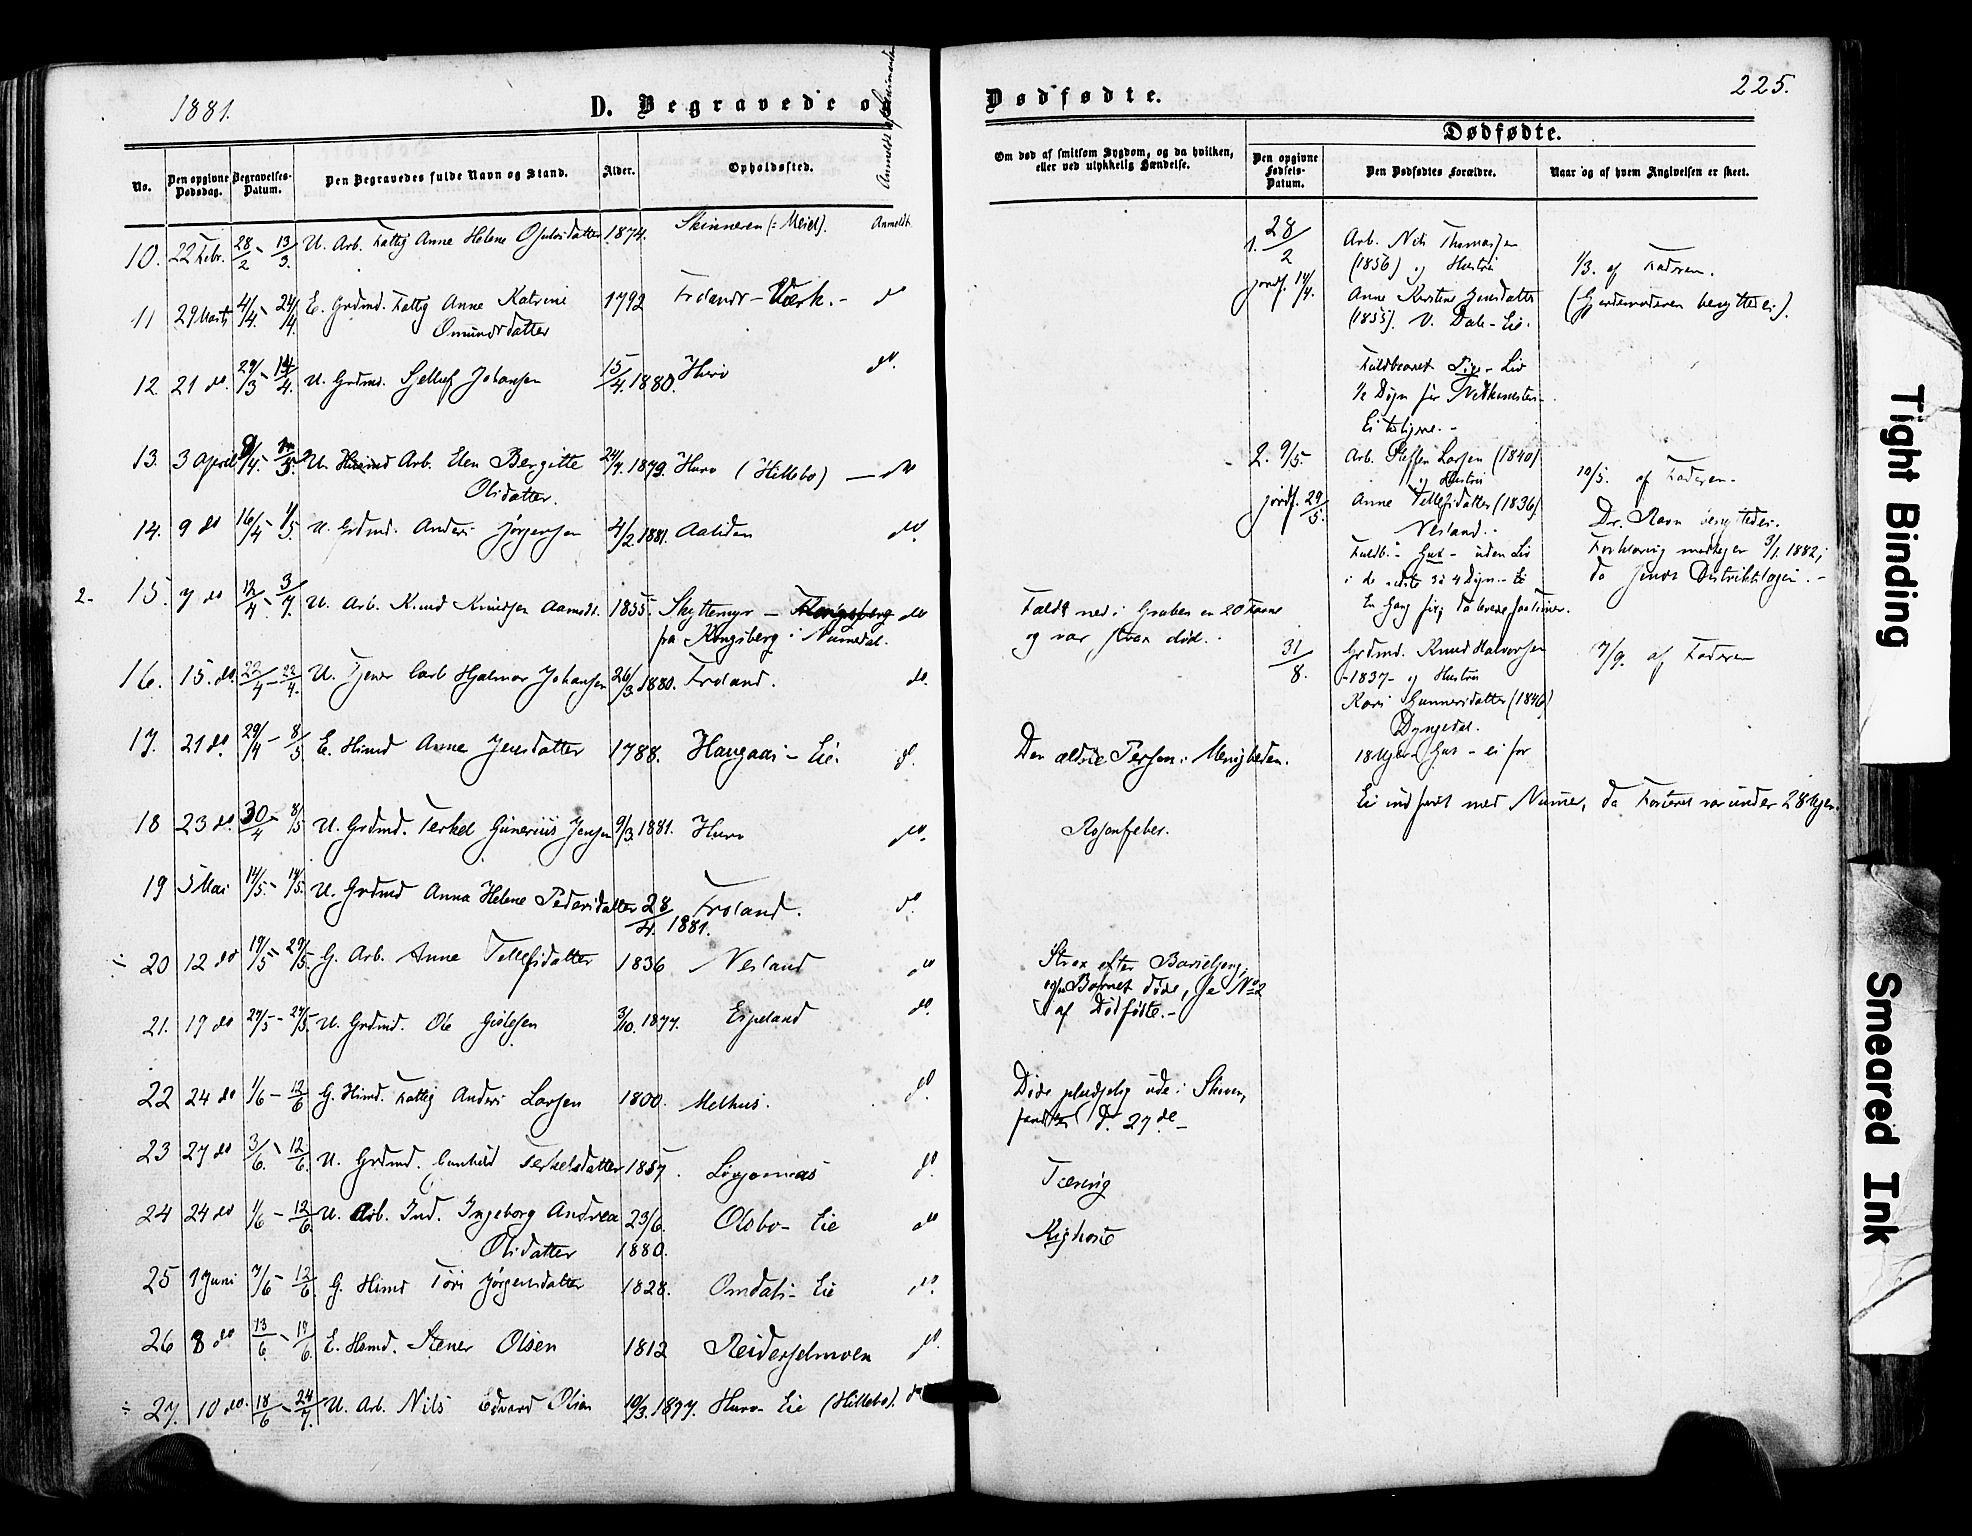 1881.
D. Begravede o
Anmeldt
No.
Den opgivne Dødsdag.
Begravelses-Datum.
Den Begravedes fulde Navn og Stand.
Alder.
Opholdssted.
10. 22 Febr. 28/2 - 13/3. U. Arb. Fattig Anne Helene 1874. Skinneren (: Meiel). Anmeldt
11 29 Marts 4/4. - 24/4 E. Grdmd. Fattig Anne Katrine 1792 Frolands-Værk. - do
Omundsdatter
12 21 do. 29/3 - 4. U. Grdmd. Sjelluf Johansen 15/4 1880. Hurv do.
13. 3 April 9/4. - 5. U. Arb. Elen Bergitte 24/7. 1879. Hurv (Hillebo) — do
Olsdatter.
14. 9 do 16/4 - 1/5. U. Grdmd. Anders Jørgensen 4/2. 1881. Aaliden do.
2.- 15. 7 do 12/4 - 3/7. U. Arb. Knud Knudsen Aamodt. 1855. Skyttemyr - Kongsberg do
fra Kongsberg i Numedal.
16. 15. do. 22/4 - 22/4. U. Tjener Carl Hjalmar Johansen 26/3. 1880. Froland. do.
17. 21 do. 29/4 - 8/5 E. Hsmd Anne Jensdatter 1788. Haugaas - Eie. do.
18 23 do. 30/4 - 8/5 U. Grdmd. Terkel Gunerius Jensen 9/3. 1881. Hurv do.
19 5 Mai 14/5 - 14/5. U. Grdmd Anna Helene Pedersdatter 28/4. 1881. Froland. do.
÷ 20 12 do 19/5 - 29/5. G. Arb. Anne Tellefsdatter 1836 Nesland do
21. 19 do 27/5 - 27/5. U. Grdmd. Ole Gislesen 3/10. 1877. Espeland do.
22 24 do 1/6 - 12/6 G. Hsmd. Fattig Anders Larsen 1800. Melhus. do.
23 27 do 3/6. - 12/6. U. Grdmd. Gunhild Terkelsdatter 1857. do.
24 24 do 1/6 - 12/6. U. Arb. Ind. Ingeborg Andrea 23/6. Olsbo- Eie do
Olsdatter 1880.
25 1 Juni 7/6 - 12/6. G. Hsmd Tori Jørgensdatter 1828. Omdals- Eie do.
26 8 do 13/6. - 19/6. E. Hsmd. Stener Olsen 1812 Reiderselmoen do.
÷ 27. 10 do. 18/6 - 24/7. U. Arb. Nils Edvard Olsen 10/3. 1877. Hurv- Eie (Hillebo). do
Dødfødte.
225.
Om død af smitsom Sygdom, og da hvilken, eller ved ulykkelig Hændelse.
Dødfødte.
Den opgivne Fødsels-Datum.
Den Dødfødtes Forældre.
Naar og af hvem Angivelsen er skeet.
Faldt ned i Gruben en 20 Favne
og var strax død.
Den ældste Person i Menigheden.
Rosenfeber.
Strax efter Barselseng,
Barnet døde, se No 2
af Dødfødte.-
Døde pludselig ude i Skoven,
fandtes d. 27de-
Tæring
Kighoste
1. 28/2 Arb. Nils Thomassen
(1856) og Hustru 1/3. af Faderen.
jordf. 14/4. Anne Kirstine Jensdatter (Gjordemoderen benyttedes).
(1855). V. Dale-Eie.
Fuldbaaret Pige- Liv
1/2 Døgn før Nedkomsten-
2. 9/5. Arb. Steffen Larsen (1840)
og Hustru 10/5. af Faderen-
jordf. 29/5. Anne Tellefsdatter (1836)
Nesland.- Dr. Ravn benyttedes.
Fuldb.- Gut - uden Liv Forklaring modtagen 3/1. 1882,
i de sidste 3 a 4 Døgn.- da Distriktslægen.-
31/8. Grdmd. Knud Halvorsen 17/9. af Faderen
-1837- og Hustru
Kari Gunnersdatter (1846)
Dyngedal.
18 Uger - Gut - ei før
Ei indført med Numer, da Fosteret var under 28 Uger.
Tight Binding
Smeared Ink